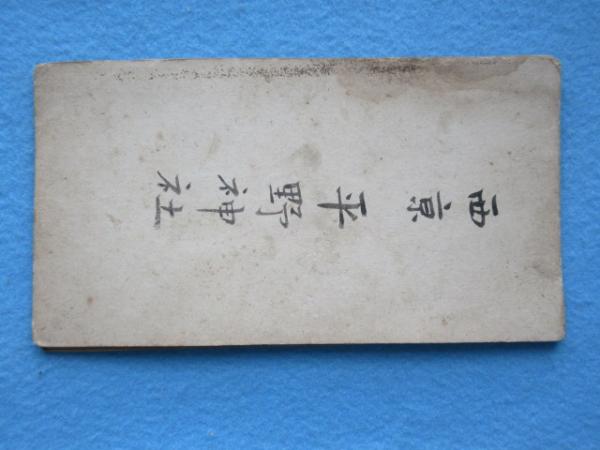 西京 平野神社